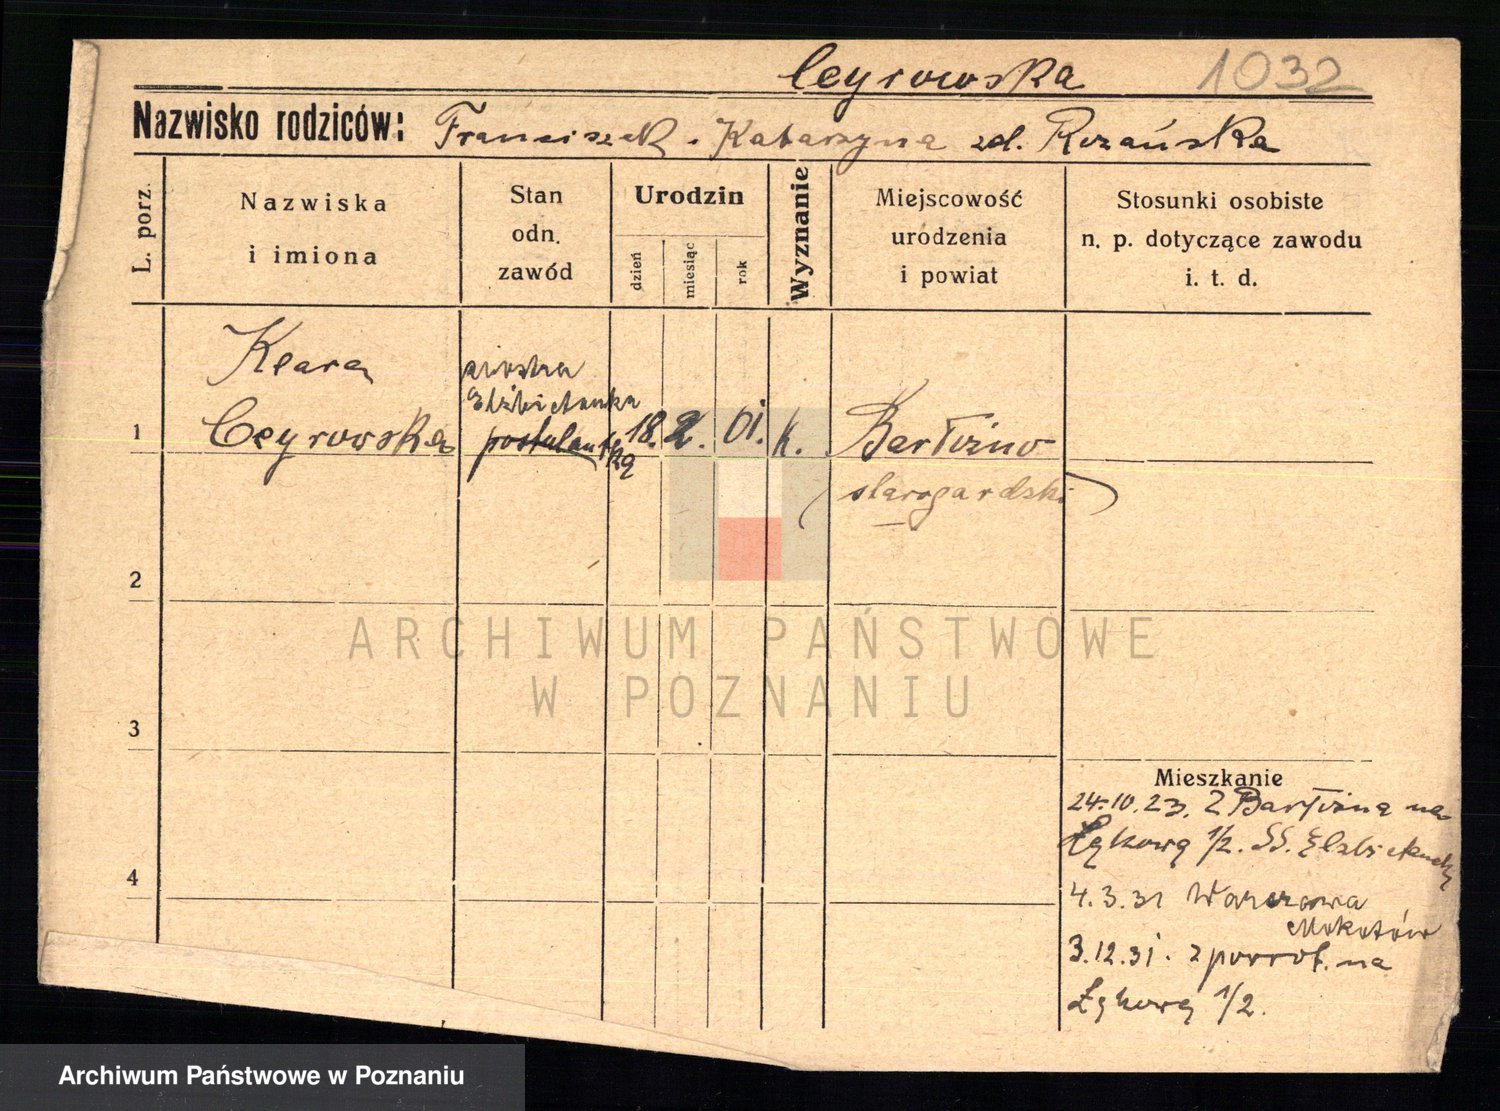 Ceyrowska 1032
Nazwisko rodziców: Franciszek - Katarzyna zd. Rozańska
L. porz.
Nazwiska
i imiona
Stan
odn.
zawód
Urodzin
dzień
miesiąc
rok
Wyznanie
Miejscowość
urodzenia
i powiat
Stosunki osobiste
n. p. dotyczące zawodu
i. t. d.
1
Klara
Ceyrowska
siostra
Elżbietanka
postulantka
18. 2. 01. k.
Bartoźno
(starogardzki)
2
3
4
ARCHIWUM PAŃSTWOWE
W POZNANIU
Mieszkanie
24.10.23. z na
Łąkową 1/2. SS. Elżbietanki
4.3.31 Warszawa
Mokotów
3.12.31. z powrot. na
Łąkową 1/2.
Archiwum Państwowe w Poznaniu